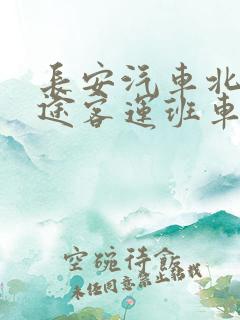 長安汽車北
途客運班車
空碗待飯
未经同意禁止转载